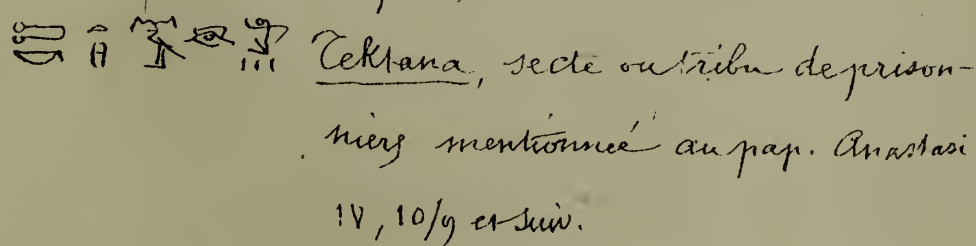 Tektana, secte ou tribu de prison-
niers mentionnée au pap. Anastasi
IV, 10/9 et suiv.